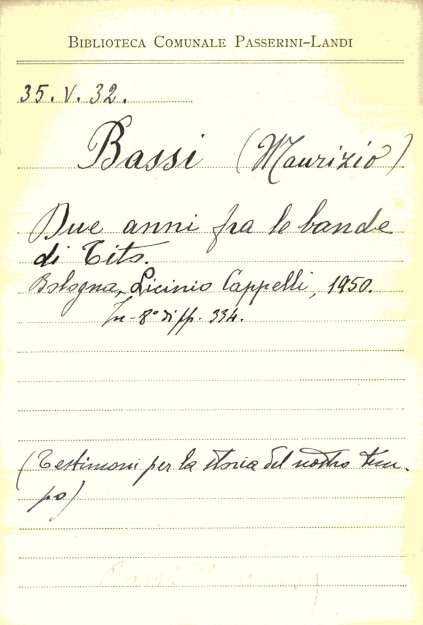 BIBLIOTECA COMUNALE PASSERINI-LANDI
35. V. 32.
Bassi (Maurizio)
Due anni fra le bande
di Tito.
Bologna, Licinio Cappelli, 1950.
In-8° di pp. 334.
(Testimoni per la storia del nostro tem-
po)